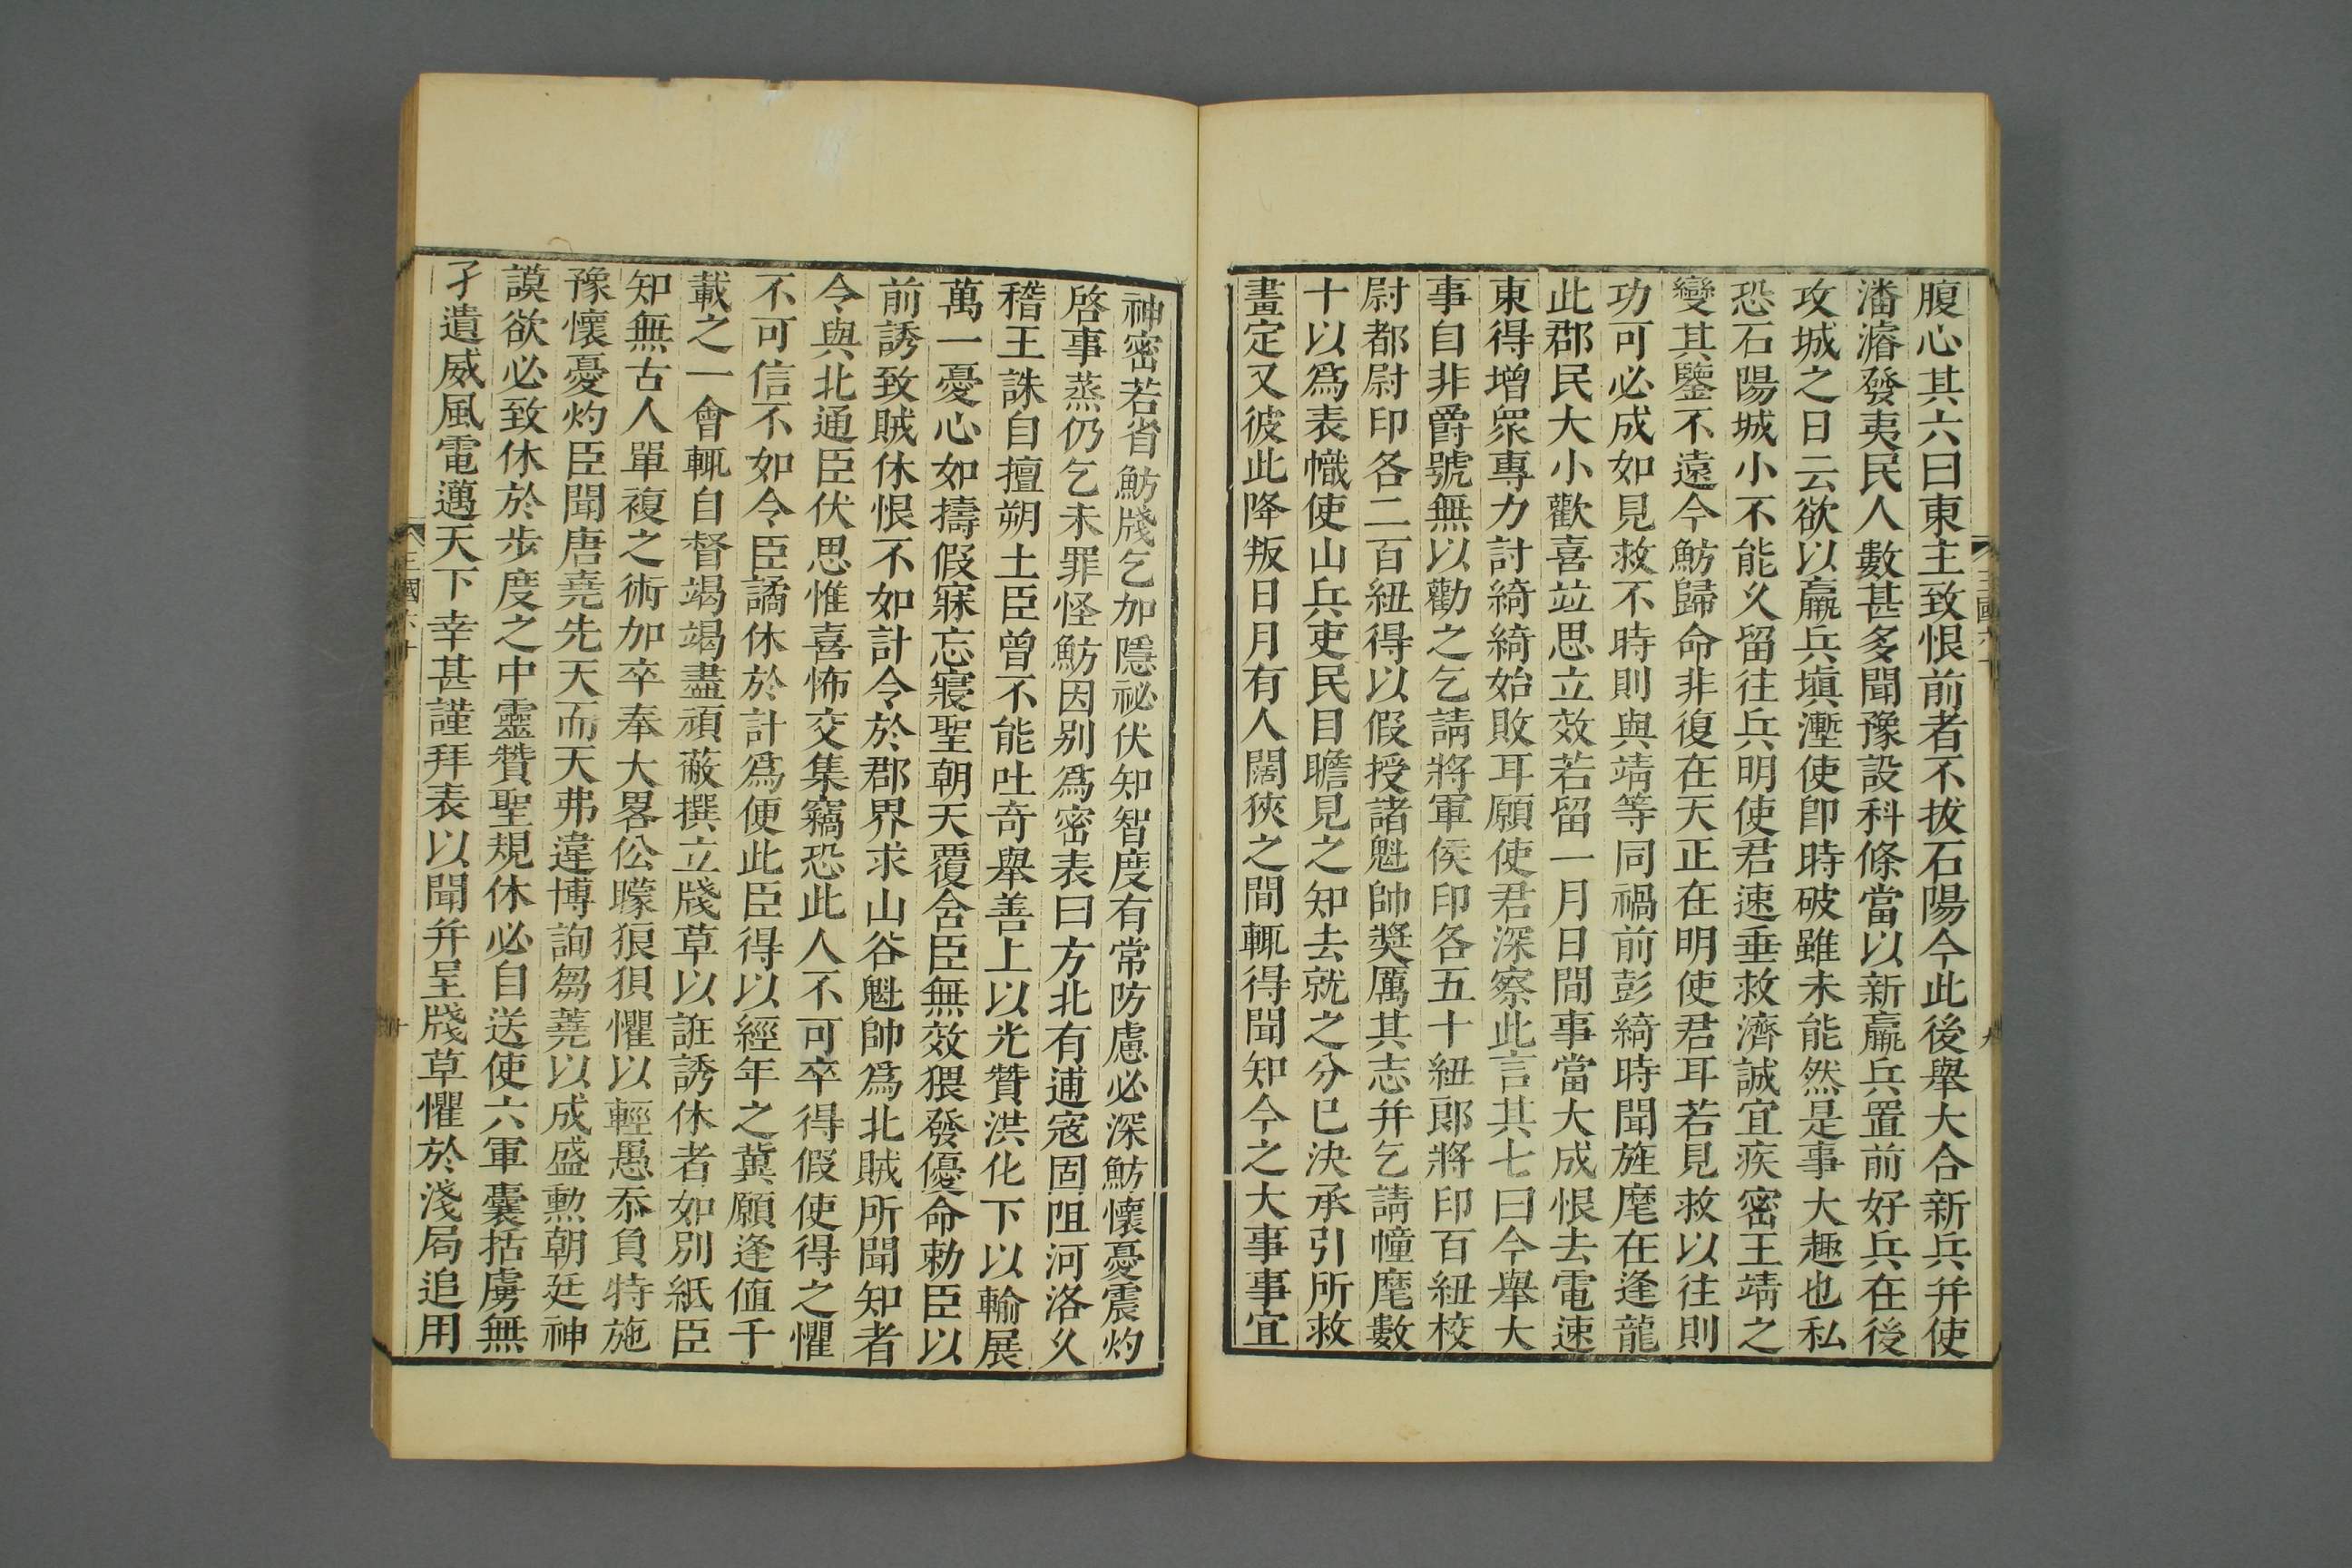 腹心其六曰東主致恨前者不拔石陽今此後舉大合新兵并使
潘濬發夷民人數甚多聞豫設科條當以新羸兵置前好兵在後
攻城之日云欲以羸兵填壍使卽時破雖未能然是事大趣也私
恐石陽城小不能久留往兵明使君速垂救濟誠宜疾密王靖之
變其鑒不遠今魴歸命非復在天正在明使君耳若見救以往則
功可必成如見救不時則與靖等同禍前彭綺時聞旌麾在逢龍
此郡民大小歡喜竝思立效若留一月日間事當大成恨去電速
東得增眾專力討綺綺始敗耳願使君深察此言其七曰今舉大
事自非爵號無以勸之乞請將軍侯印各五十紐郎將印百紐校
尉都尉印各二百紐得以假授諸魁帥獎厲其志并乞請幢麾數
十以爲表幟使山兵吏民目瞻見之知去就之分已決承引所救
畫定又彼此降叛日月有人闊狹之間輒得聞知今之大事事宜
神密若省魴牋乞加隱祕伏知智度有常防慮必深魴懷憂震灼
啓事蒸仍乞未罪怪魴因别爲密表曰方北有逋寇固阻河洛久
稽王誅自擅朔土臣曾不能吐奇舉善上以光贊洪化下以輸展
萬一憂心如擣假寐忘寢聖朝天覆含臣無效猥發優命勅臣以
前誘致賊休恨不如計令於郡界求山谷魁帥爲北賊所聞知者
令與北通臣伏思惟喜怖交集竊恐此人不可卒得假使得之懼
不可信不如令臣譎休於計爲便此臣得以經年之冀願逢值千
載之一會輒自督竭竭盡頑蔽撰立牋草以誑誘休者如別紙臣
知無古人單複之術加卒奉大畧伀矇狼狽懼以輕愚忝負特施
豫懷憂灼臣聞唐堯先天而天弗違博詢芻蕘以成盛勲朝廷神
謨欲必致休於步度之中靈贊聖規休必自送使六軍囊括虜無
孑遺威風電邁天下幸甚謹拜表以聞并呈牋草懼於淺局追用